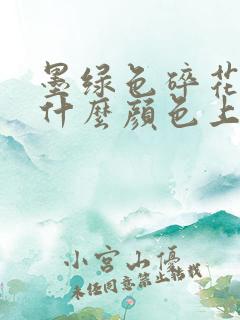 墨绿色碎花
什麼顏色上
小宫山優
未经同意禁止转载